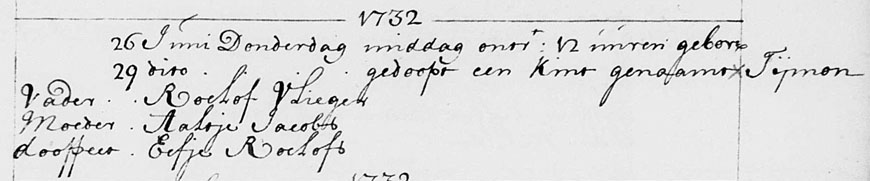 1732
26 Juni Donderdag middag ontr: 12 uuren geboren
29 dito . . . gedoopt een Kint genaamt × Tijmon
Vader . . Roelof Vlieger
Moeder . Aaltje Jacobs
doopheet . Eefje Roelofs
1732